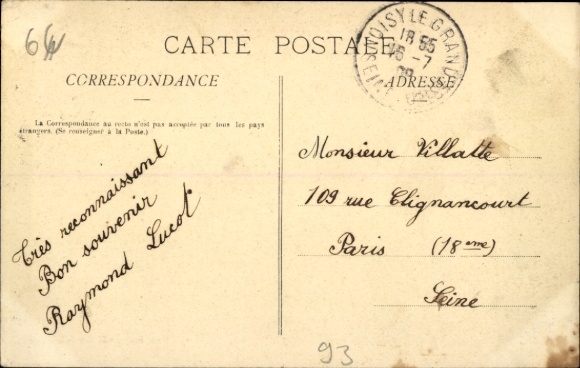 CARTE POSTALE
NOISY LE GRAND
18 55
16 - 7
CORRESPONDANCE
ADRESSE
La Correspondance au recto n'est pas acceptée par tous les pays
étrangers. (Se renseigner à la Poste.)
Très reconnaissant
Bon souvenir
Raymond Lucot
Monsieur Villatte
109 rue Clignancourt
Paris (18eme)
Seine
93